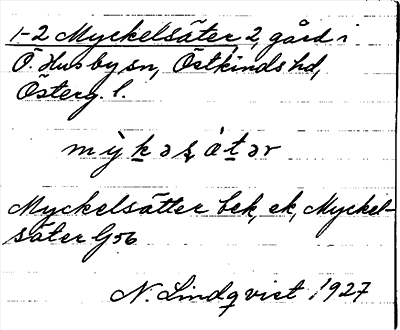 1-2 Myckelsäter 2, gård i
Ö. Husby sn, Östkinds hd,
Österg. l.
Myckelsätter bek, ek, Myckel-
säter G56
N. Lindqvist 1927